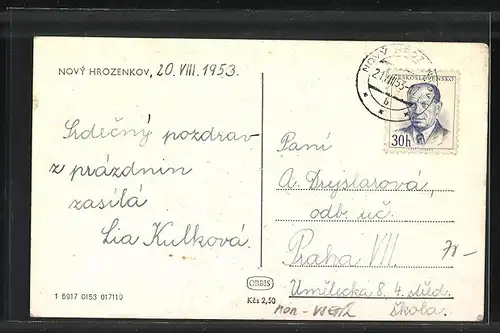 NOVÝ HROZENKOV, 20. VIII. 1953.
Srdečný pozdrav
z prázdnin
zasílá
Lia Kulková.
NOVÝ HROZ
21.VIII.53
b
ČESKOSLOVENSKO
30h
Paní
A. Dryslarová,
odb. uč.
Praha VII.
Umělecká 8. 4. střed.
škola.
70-
ORBIS
Kčs 2,50
1 5917 0153 017110